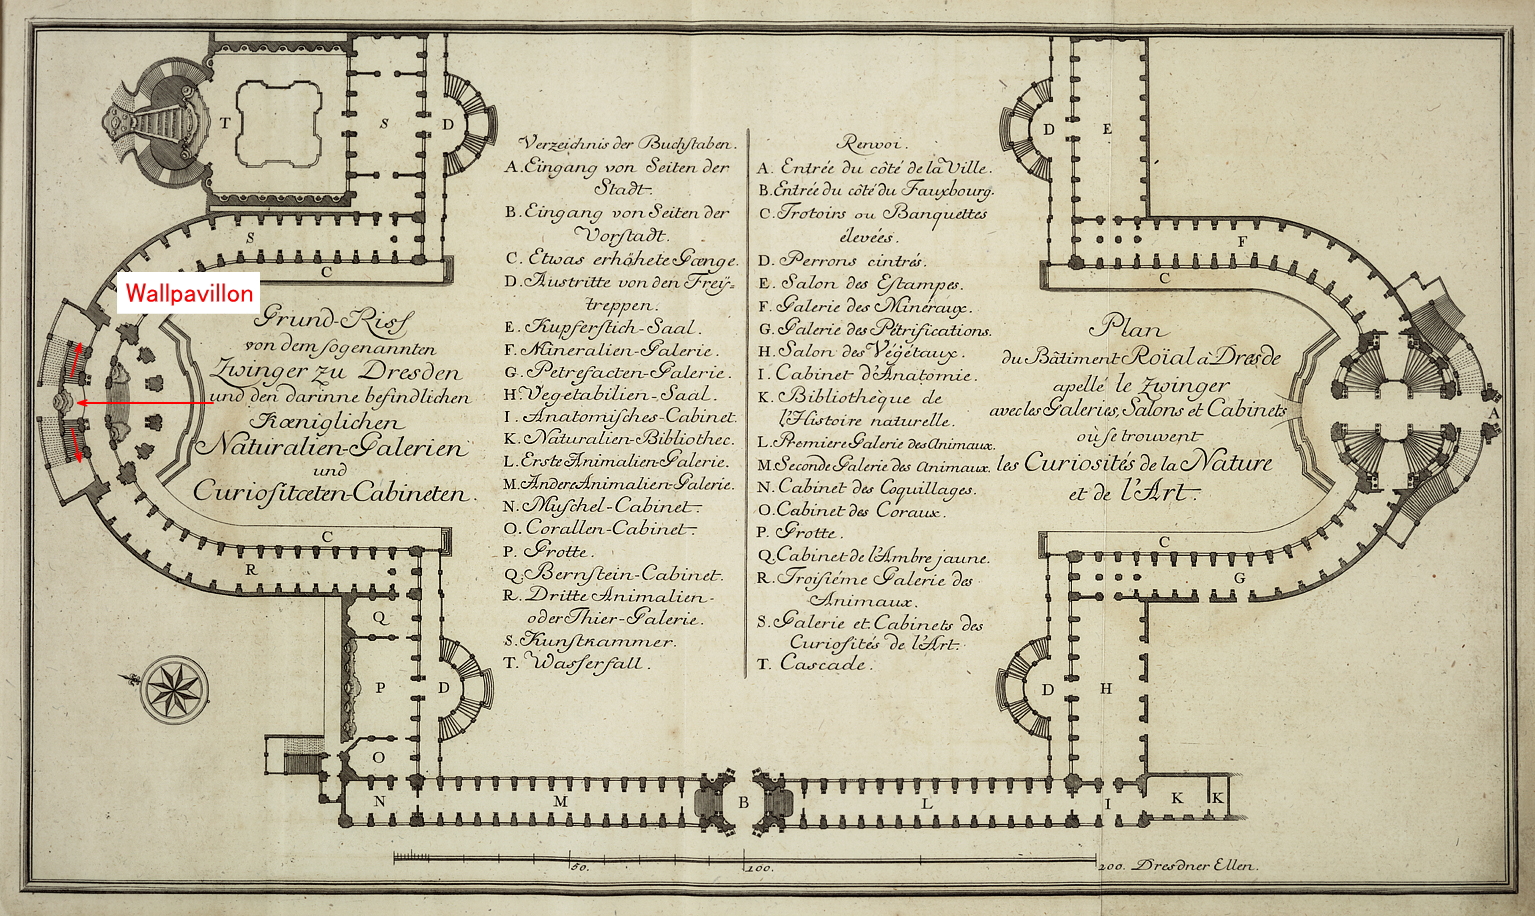 Wallpavillon
Grund-Riss
von dem sogenannten
Zwinger zu Dresden
und den darinne befindlichen
Kœniglichen
Naturalien-Galerien
und
Curiositæten-Cabineten.
Verzeichnis der Buchstaben.
A. Eingang von Seiten der
Stadt.
B. Eingang von Seiten der
Vorstadt.
C. Etwas erhöhete Gænge.
D. Austritte von den Freÿ-
treppen.
E. Kupferstich-Saal.
F. Mineralien-Galerie.
G. Petrefacten-Galerie.
H. Vegetabilien-Saal.
I. Anatomisches-Cabinet.
K. Naturalien-Bibliothec.
L. Erste Animalien-Galerie.
M. Andere Animalien-Galerie.
N. Muschel-Cabinet.
O. Corallen-Cabinet.
P. Grotte.
Q. Bernstein-Cabinet.
R. Dritte Animalien-
oder Thier-Galerie.
S. Kunstkammer.
T. Wasserfall.
Renvoi.
A. Entrée du côté de la Ville.
B. Entrée du côté du Fauxbourg.
C. Trotoirs ou Banquettes
élevées.
D. Perrons cintrés.
E. Salon des Estampes.
F. Galerie des Minéraux.
G. Galerie des Pétrifications.
H. Salon des Végétaux.
I. Cabinet d'Anatomie.
K. Bibliothéque de
l'Histoire naturelle.
L. Premiere Galerie des Animaux.
M. Seconde Galerie des Animaux.
N. Cabinet des Coquillages.
O. Cabinet des Coraux.
P. Grotte.
Q. Cabinet de l'Ambre jaune.
R. Troisiéme Galerie des
Animaux.
S. Galerie et Cabinets des
Curiosités de l'Art.
T. Cascade.
Plan
du Bâtiment Roïal à Dresde
apellé le Zwinger
avec les Galeries, Salons et Cabinets
où se trouvent
les Curiosités de la Nature
et de l'Art.
T
S
D
S
C
C
R
Q
P
D
O
N
M
B
L
I
K
K
D
E
F
C
A
C
G
D
H
50.
100.
200. Dresdner Ellen.